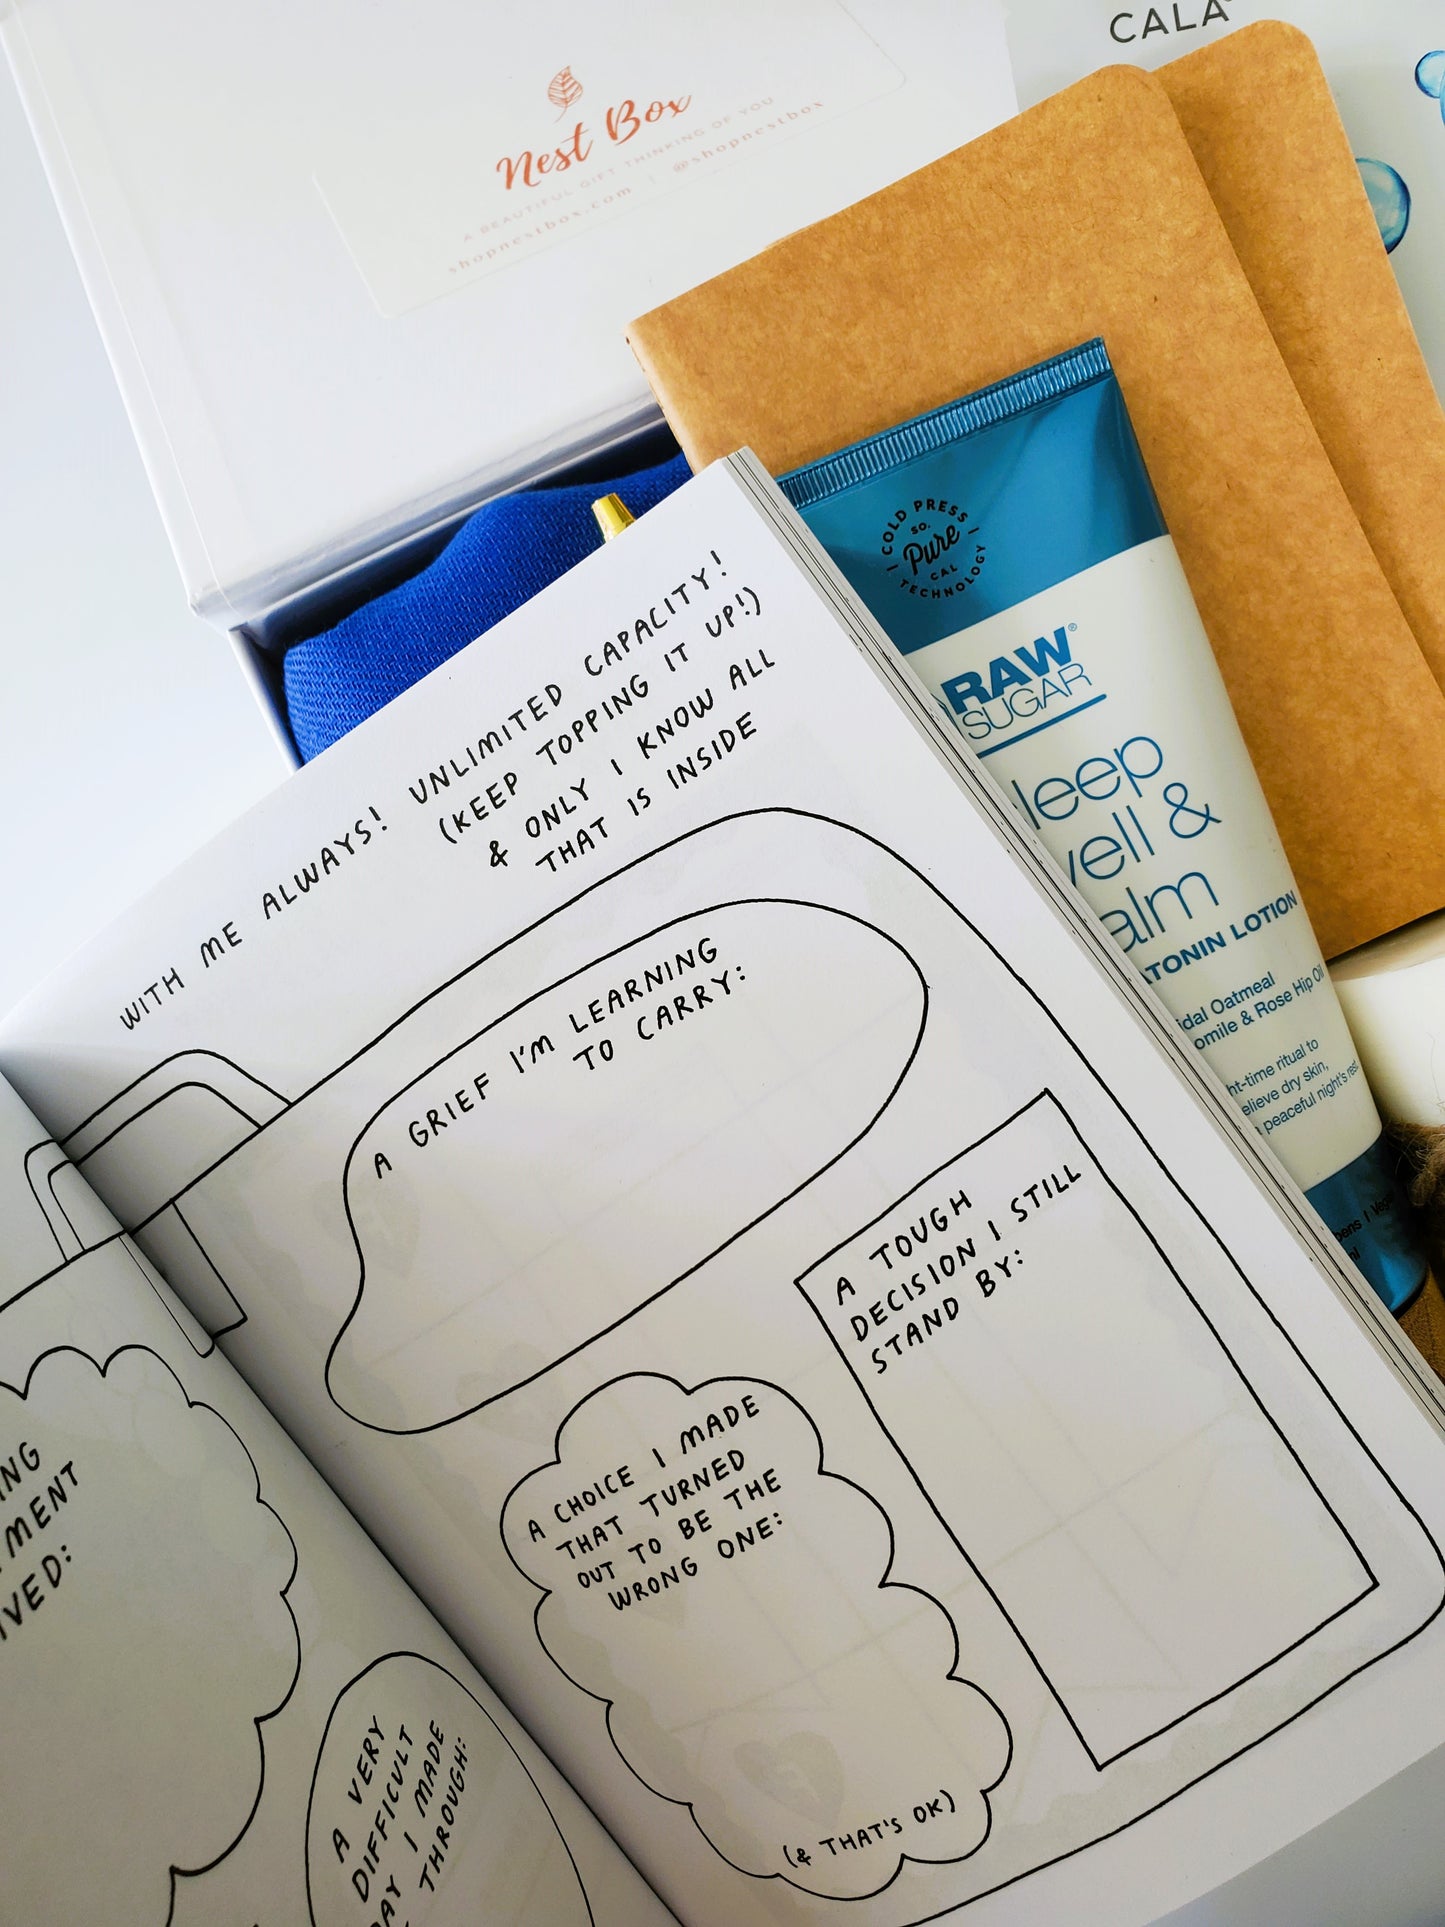 CALA
Nest Box
A BEAUTIFUL GIFT THINKING OF YOU
shopnestbox.com | @shopnestbox
COLD PRESS
SO.
Pure
CAL
TECHNOLOGY
RAW®
SUGAR
leep
ell &
alm
TONIN LOTION
idal Oatmeal
omile & Rose Hip Oil
ht-time ritual to
elieve dry skin,
a peaceful night's rest.
WITH ME ALWAYS! UNLIMITED CAPACITY!
(KEEP TOPPING IT UP!)
& ONLY I KNOW ALL
THAT IS INSIDE
A GRIEF I'M LEARNING
TO CARRY:
A TOUGH
DECISION I STILL
STAND BY:
A CHOICE I MADE
THAT TURNED
OUT TO BE THE
WRONG ONE:
(& THAT'S OK)
NG
MENT
VED:
A VERY
DIFFICULT
DAY I MADE
THROUGH: